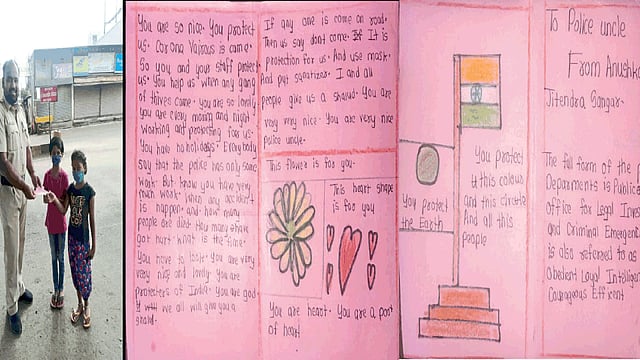 You are so nice. You protect
us. Corona Vairous is came.
So you and your staff protect
us. You help us when any gang
of thives come. you are so lovely
you are every mornin and night
working and protecting for us.
You have no holidays. Everybody
say that the police has only some
work. But know you have very
When any
is happen and how many
people are died they many
got hurt. what is the time.
You have to look. you are very
very nice and lovely. you are
protecters of India. You are god
we all will give you a
If any one is come on road.
Then us say don't come. If It is
protection for us. And use mask.
And put I and all
people give us a You are
very very nice. You are very nice
police uncle.
This flower is for you.
This heart shape
is for you
You are heart. You are a part
of heart
You protect
the Earth
You protect
this colour
and this
And all this
people
To Police uncle
From Anushka
Jitendra
The full form of the
Departments is Public
Office for Legal
and Criminal
is also referred to as
Obedient Loyal
Courageous Efficent